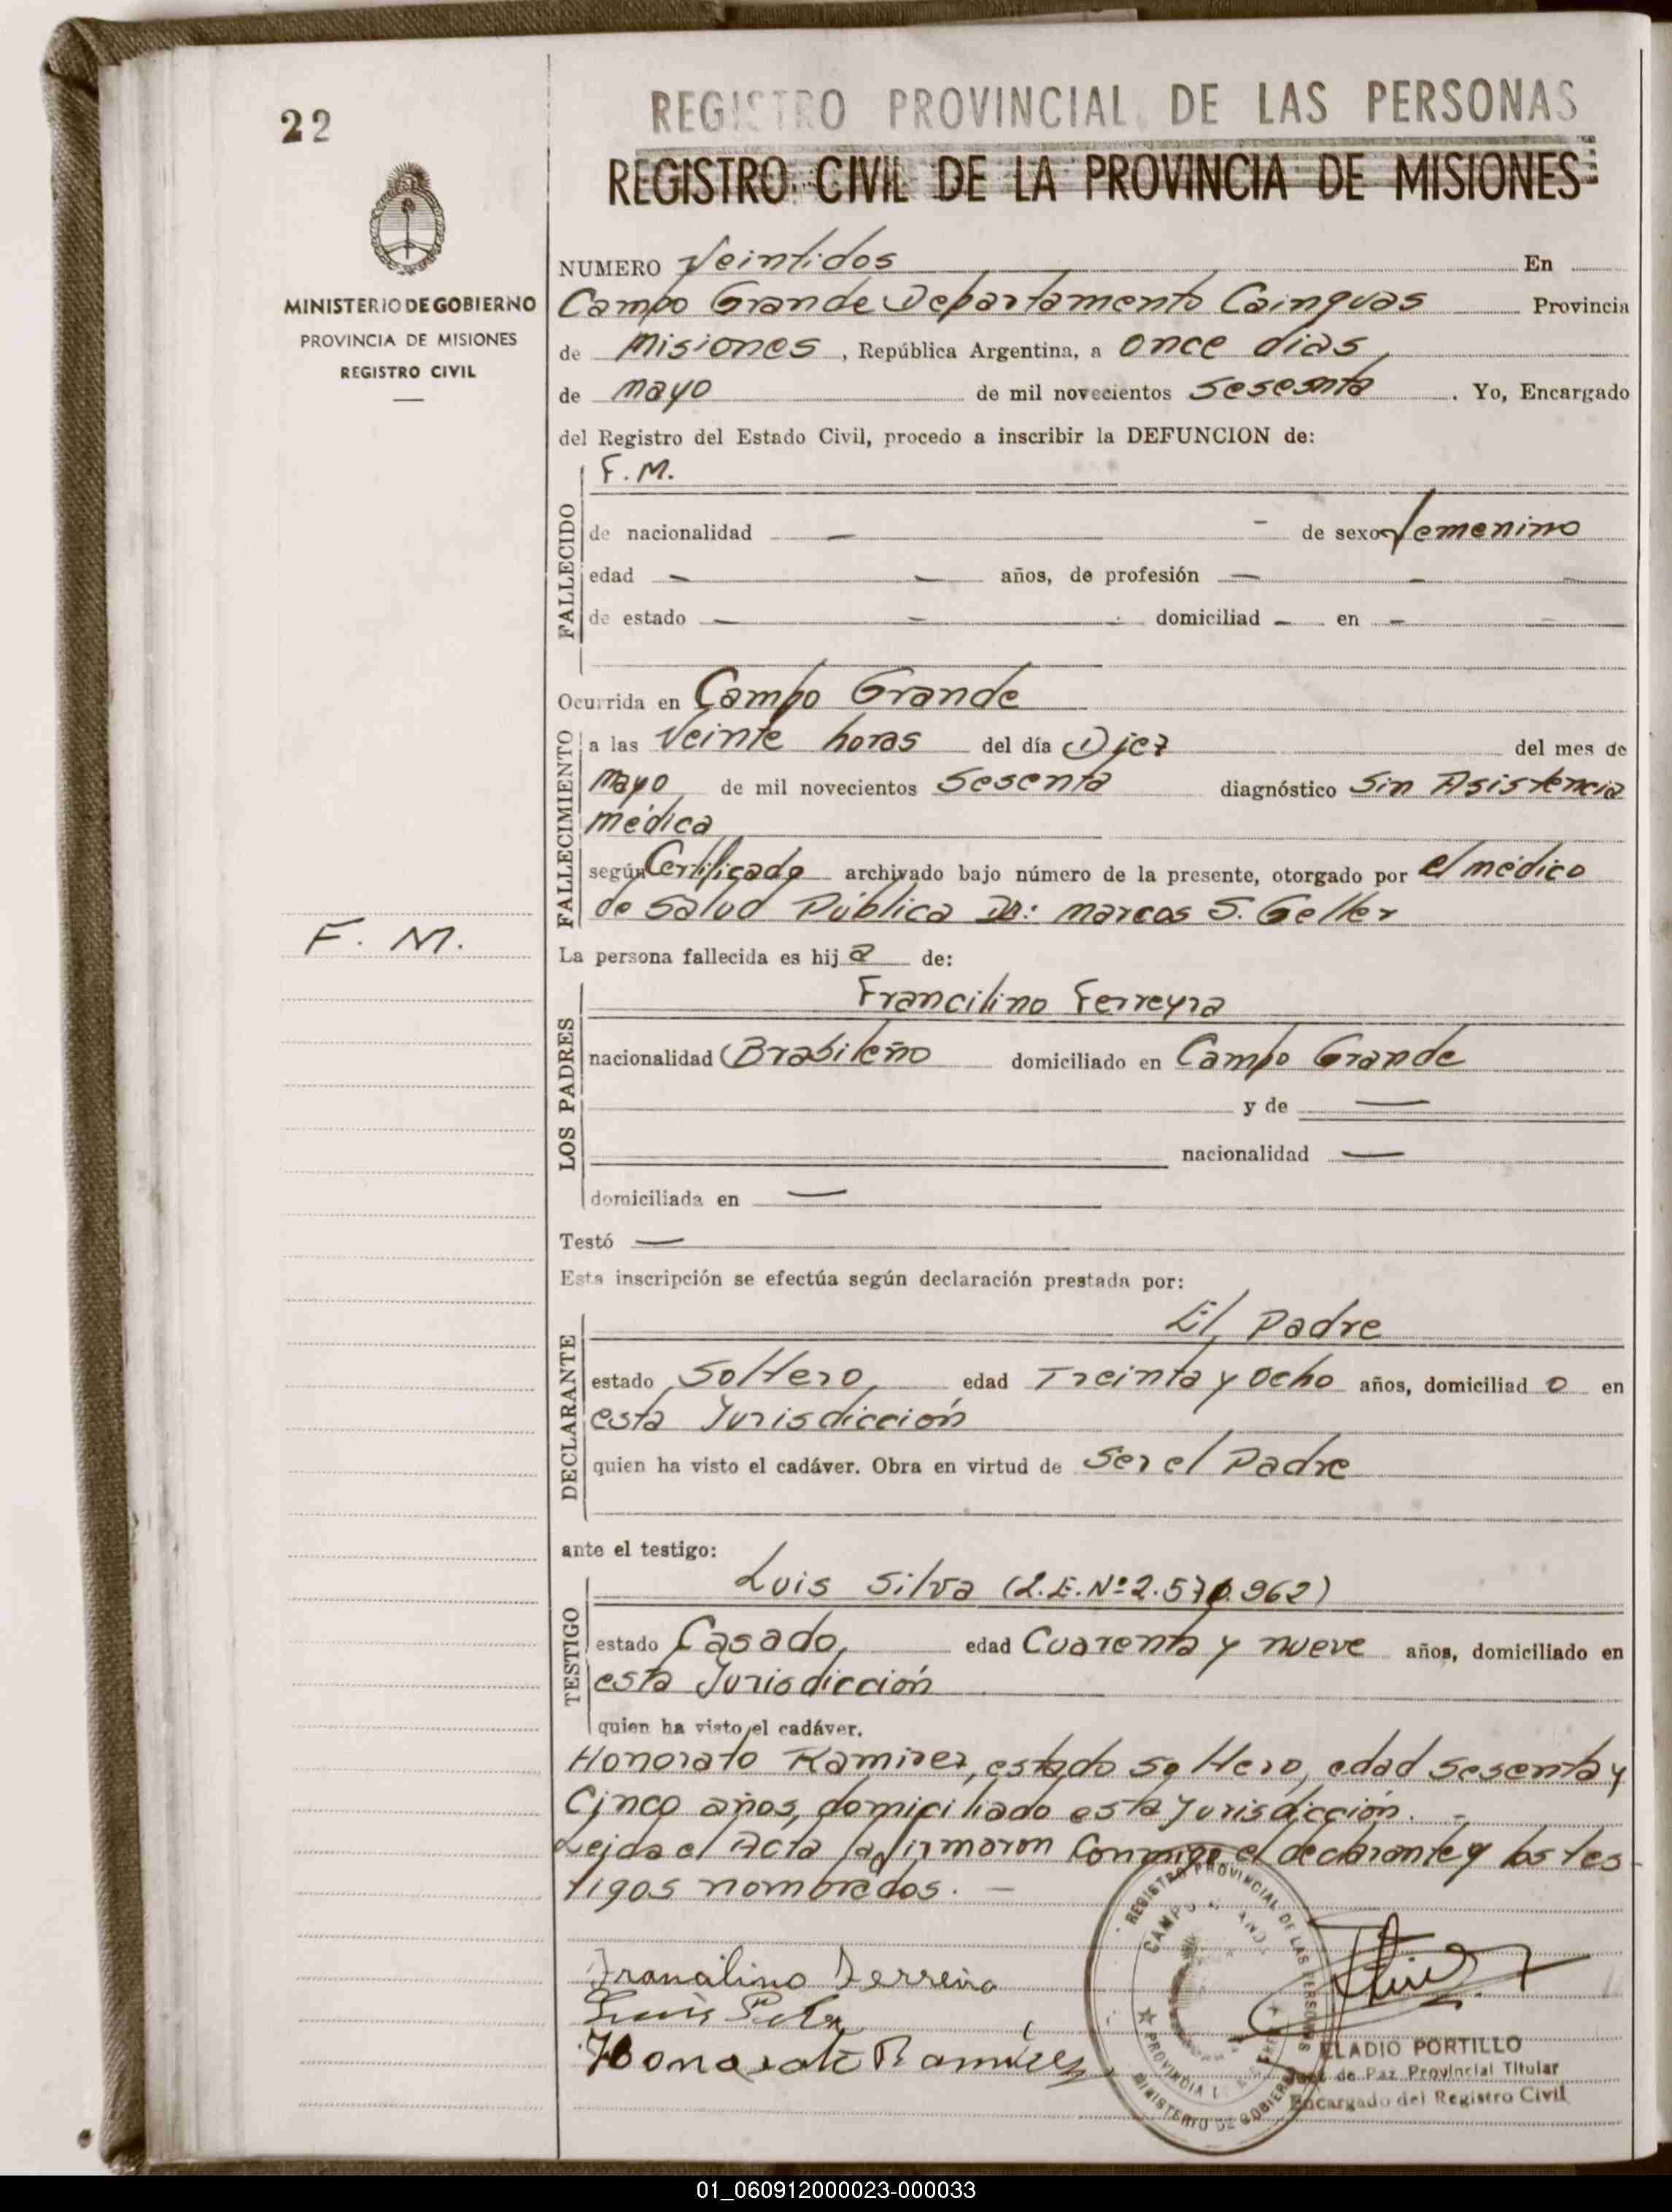 22
REGISTRO PROVINCIAL DE LAS PERSONAS
REGISTRO CIVIL DE LA PROVINCIA DE MISIONES
MINISTERIO DE GOBIERNO
PROVINCIA DE MISIONES
REGISTRO CIVIL
NUMERO Veintidos En
Campo Grande Departamento Cainguas Provincia
de Misiones, República Argentina, a once dias,
de mayo de mil novecientos sesenta. Yo, Encargado
del Registro del Estado Civil, procedo a inscribir la DEFUNCION de:
FALLECIDO
F. M.
de nacionalidad — - de sexo femenino
edad — — años, de profesión — — —
de estado — — - domiciliad — en — —
Ocurrida en Campo Grande
FALLECIMIENTO
a las Veinte horas del día Diez del mes de
mayo de mil novecientos Sesenta diagnóstico Sin Asistencia
médica
según Certificado archivado bajo número de la presente, otorgado por el médico
de Salud Pública Dr: Marcos S. Geller
F. M.
La persona fallecida es hija de:
LOS PADRES
Francilino Ferreyra
nacionalidad Brasileño domiciliado en Campo Grande
y de —
nacionalidad —
domiciliada en —
Testó —
Esta inscripción se efectúa según declaración prestada por:
DECLARANTE
El Padre
estado Soltero, edad Treinta y Ocho años, domiciliado en
esta Jurisdicción
quien ha visto el cadáver. Obra en virtud de Ser el Padre
ante el testigo:
TESTIGO
Luis Silva (L.E.Nº 2.570.962)
estado Casado, edad Cuarenta y nueve años, domiciliado en
esta Jurisdicción
quien ha visto el cadáver.
Honorato Ramirez, estado soltero, edad sesenta y
Cinco años, domiciliado esta Jurisdicción. -
Leida el Acta la firmaron Conmigo el declarante y los tes-
tigos nombrados. —
Francilino Ferreira
Luis Silva
Honorato Ramirez
REGISTRO PROVINCIAL DE LAS PERSONAS
CAMPO GRANDE
MINISTERIO DE GOBIERNO
ELADIO PORTILLO
Juez de Paz Provincial Titular
Encargado del Registro Civil
01_060912000023-000033